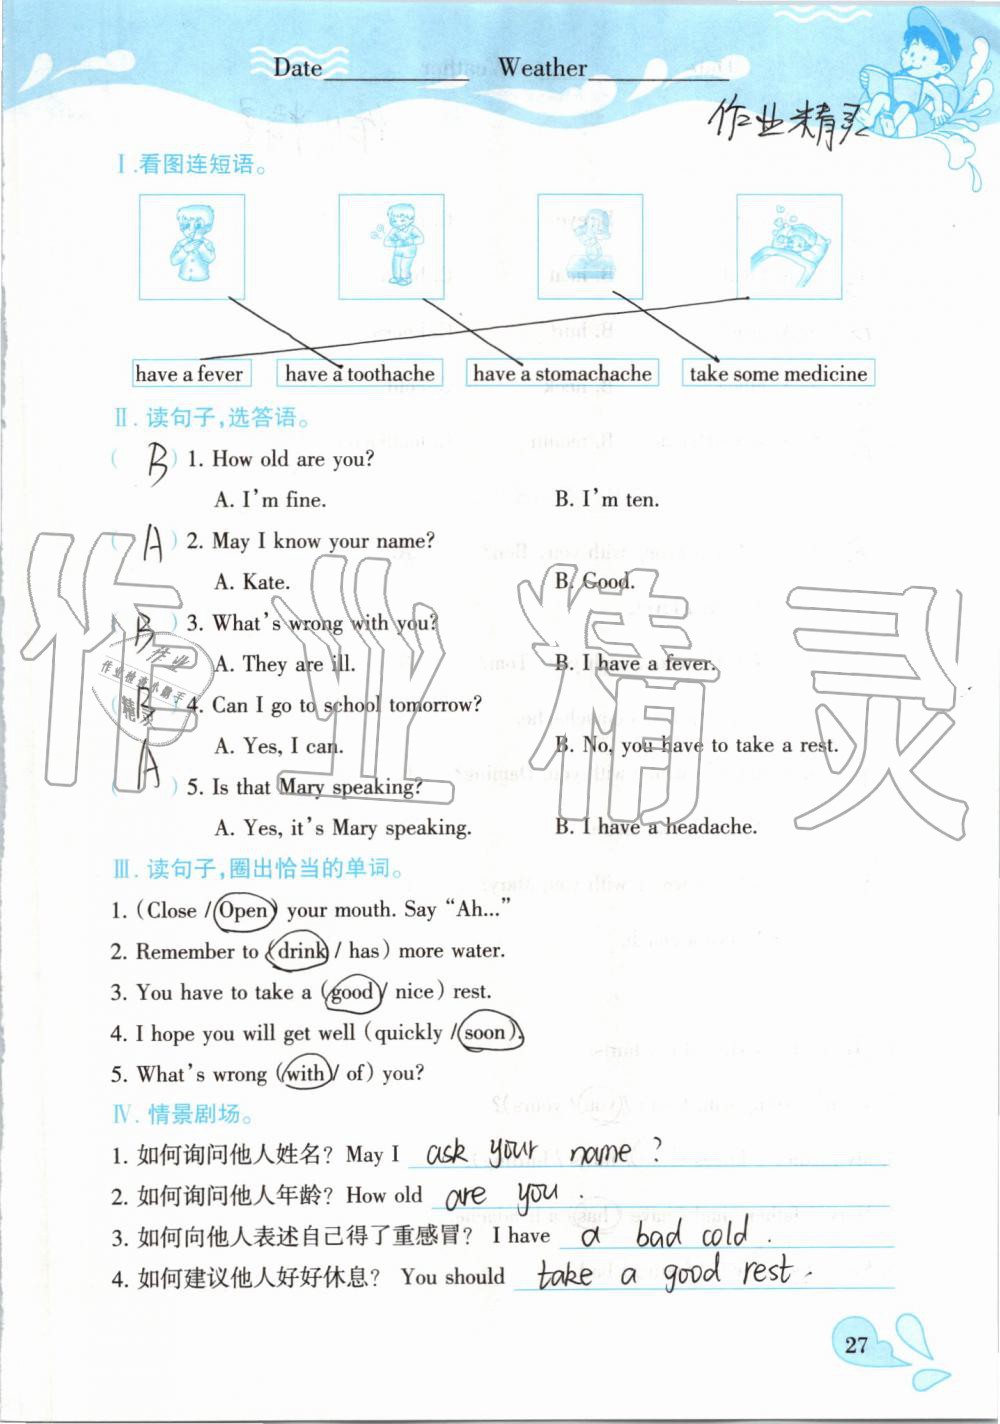 Date________ Weather________
作业精灵
Ⅰ.看图连短语。
have a fever have a toothache have a stomachache take some medicine
Ⅱ.读句子,选答语。
( B ) 1. How old are you?
A. I'm fine. B. I'm ten.
( A ) 2. May I know your name?
A. Kate. B. Good.
( B ) 3. What's wrong with you?
A. They are ill. B. I have a fever.
( B ) 4. Can I go to school tomorrow?
A. Yes, I can. B. No, you have to take a rest.
( A ) 5. Is that Mary speaking?
A. Yes, it's Mary speaking. B. I have a headache.
作业精灵
作业
作业检查小助手
精灵
Ⅲ.读句子,圈出恰当的单词。
1. (Close / Open) your mouth. Say “Ah...”
2. Remember to (drink / has) more water.
3. You have to take a (good / nice) rest.
4. I hope you will get well (quickly / soon).
5. What's wrong (with / of) you?
Ⅳ.情景剧场。
1. 如何询问他人姓名? May I ask your name?
2. 如何询问他人年龄? How old are you.
3. 如何向他人表述自己得了重感冒? I have a bad cold.
4. 如何建议他人好好休息? You should take a good rest.
27